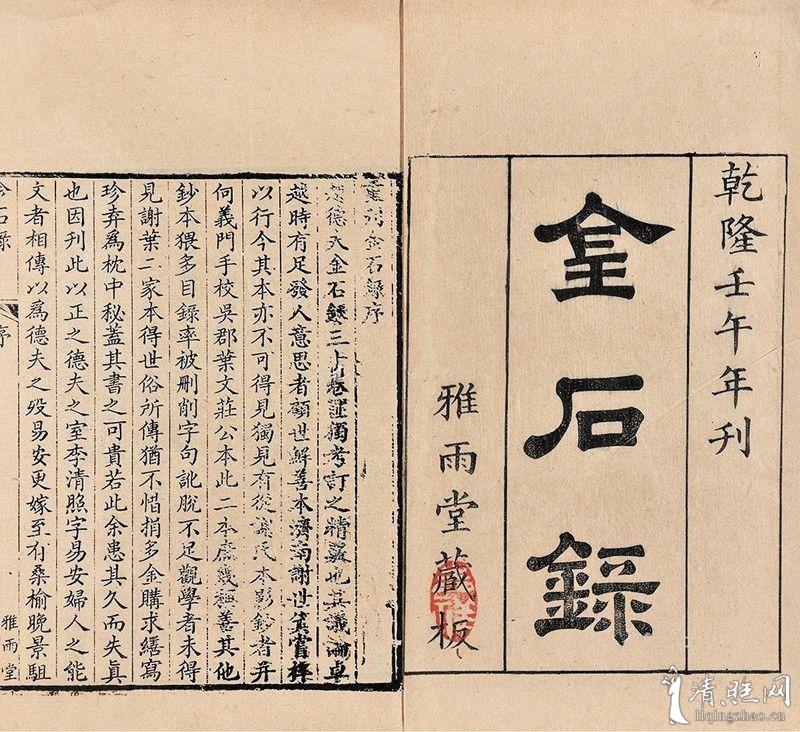 乾隆壬午年刊
金石錄
雅雨堂藏板
重刊金石錄序
趙德夫金石錄三十卷匪獨考訂之精覈也其議論卓
越時有足發人意思者顧世鮮善本濟南謝世箕嘗梓
以行今其本亦不可得見獨見有從謝氏本影鈔者并
何義門手校吳郡葉文莊公本此二本庶幾稱善其他
鈔本猥多目錄率被刪削字句訛脫不足觀學者未得
見謝葉二家本得世俗所傳猶不惜捐多金購求繕寫
珍弆爲枕中秘蓋其書之可貴若此余患其久而失真
也因刊此以正之德夫之室李清照字易安婦人之能
文者相傳以爲德夫之歿易安更嫁至有桑榆晚景駔
金石錄 序 雅雨堂
清照网
liqingzhao.cn